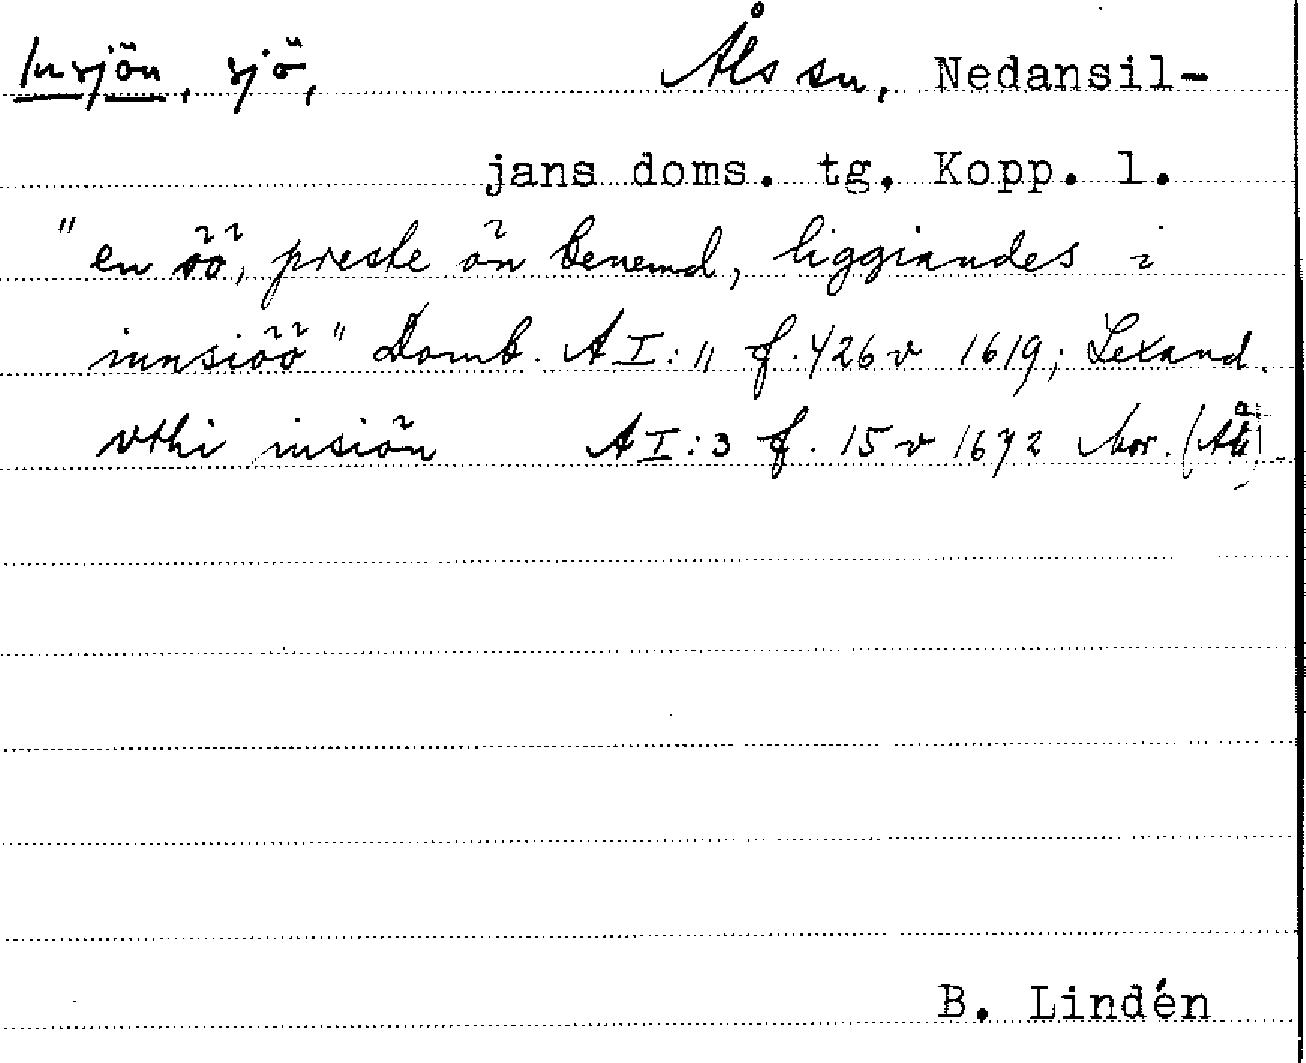 Insjön, sjö, Åls sn, Nedansil-
jans doms. tg. Kopp. l.
"en öö, preste ön benemd, liggiandes i
innsiöö" Domb. A I: 11 f. 426 v 1619; Lexand.
vthi insiön A I: 3 f. 15 v 1672 Nor. (Ål)
B. Lindén